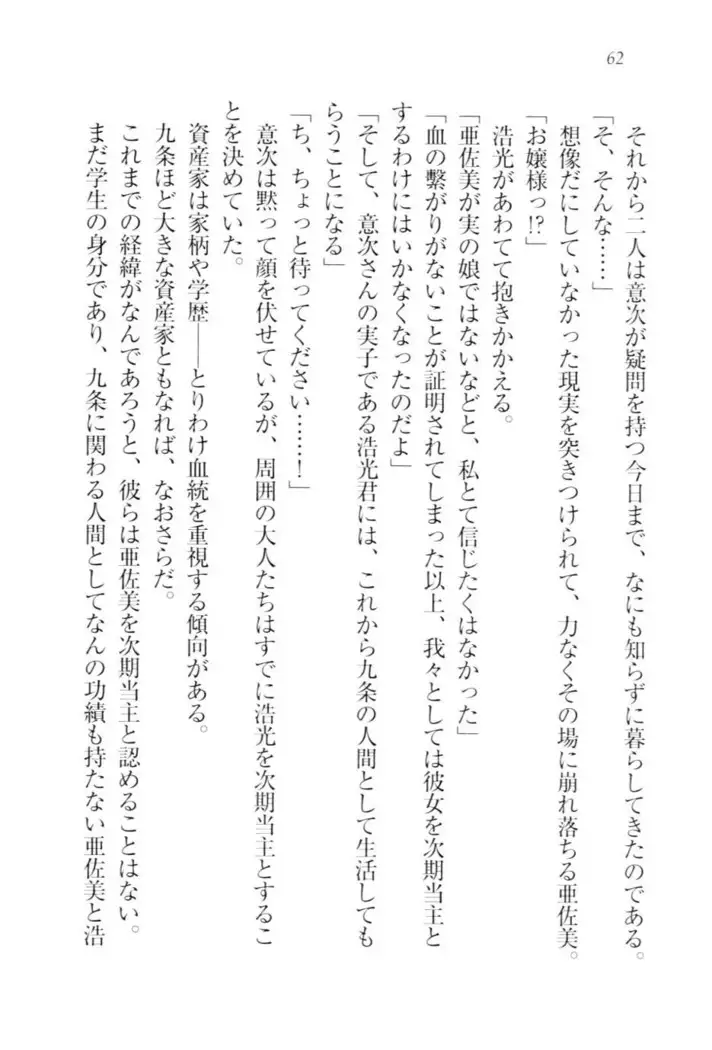 62
それから二人は意次が疑問を持つ今日まで、なにも知らずに暮らしてきたのである。
「そ、そんな……」
想像だにしていなかった現実を突きつけられて、力なくその場に崩れ落ちる亜佐美。
「お嬢様っ!?」
浩光があわてて抱きかかえる。
「亜佐美が実の娘ではないなどと、私とて信じたくはなかった」
「血の繋がりがないことが証明されてしまった以上、我々としては彼女を次期当主と
するわけにはいかなくなったのだよ」
「そして、意次さんの実子である浩光君には、これから九条の人間として生活しても
らうことになる」
「ち、ちょっと待ってください……！」
意次は黙って顔を伏せているが、周囲の大人たちはすでに浩光を次期当主とするこ
とを決めていた。
資産家は家柄や学歴――とりわけ血統を重視する傾向がある。
九条ほど大きな資産家ともなれば、なおさらだ。
これまでの経緯がなんであろうと、彼らは亜佐美を次期当主と認めることはない。
まだ学生の身分であり、九条に関わる人間としてなんの功績も持たない亜佐美と浩